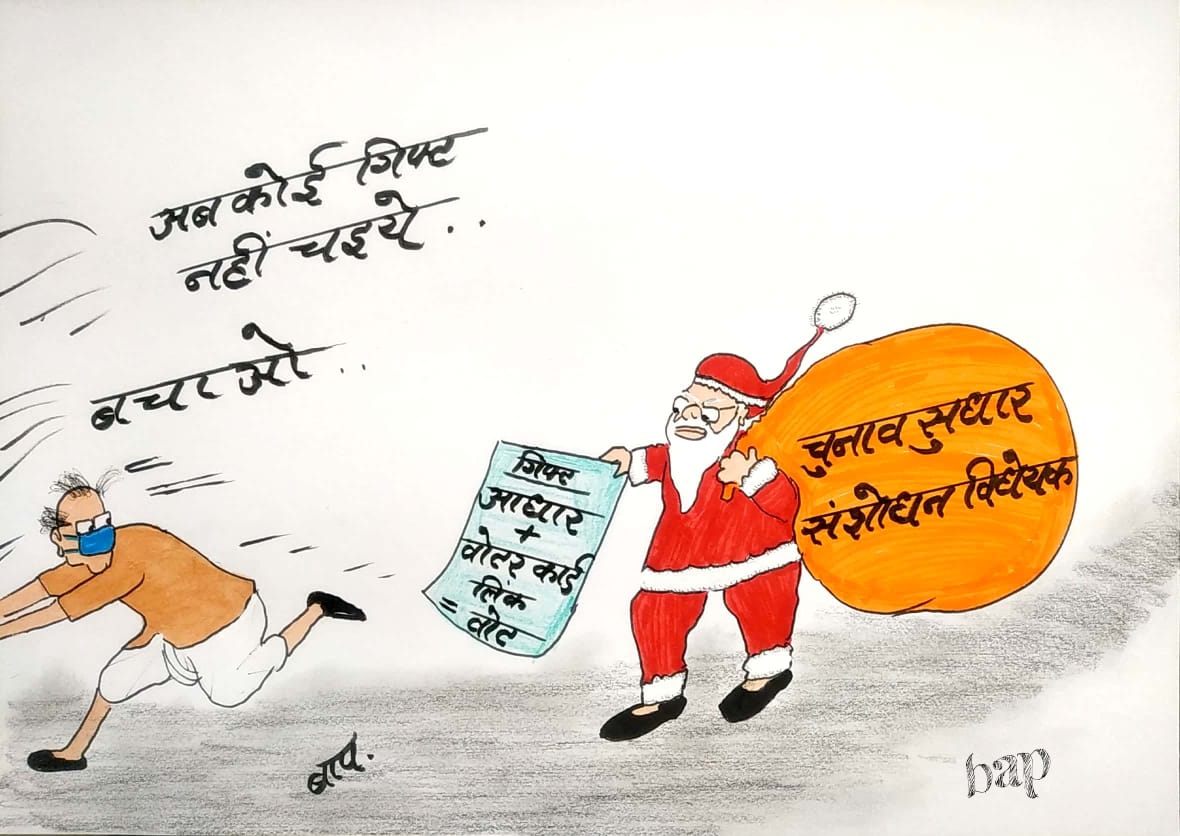 अब कोई गिफ्ट
नहीं चइये..
बचाओ..
गिफ्ट
आधार
+
वोटर कार्ड
लिंक
= वोट
चुनाव सुधार
संशोधन विधेयक
बाप.
bap